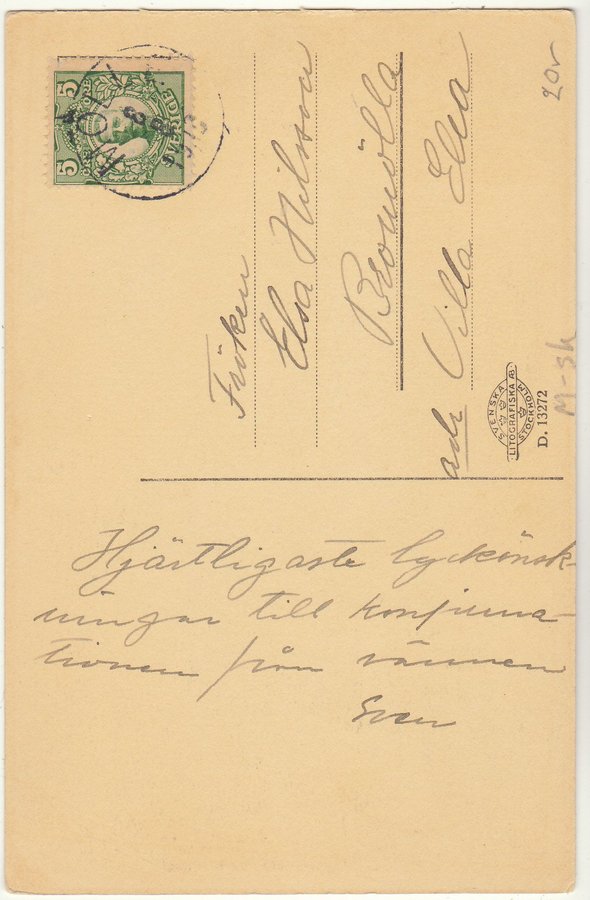 5 5
SVERIGE
Fröken
Elsa Nilsson
Bromölla
adr Villa Elsa
SVENSKA
LITOGRAFISKA AB
STOCKHOLM
D. 13272
20r
M-sk
Hjärtligaste lyckönsk-
ningar till konfirma-
tionen från vännen
Sven